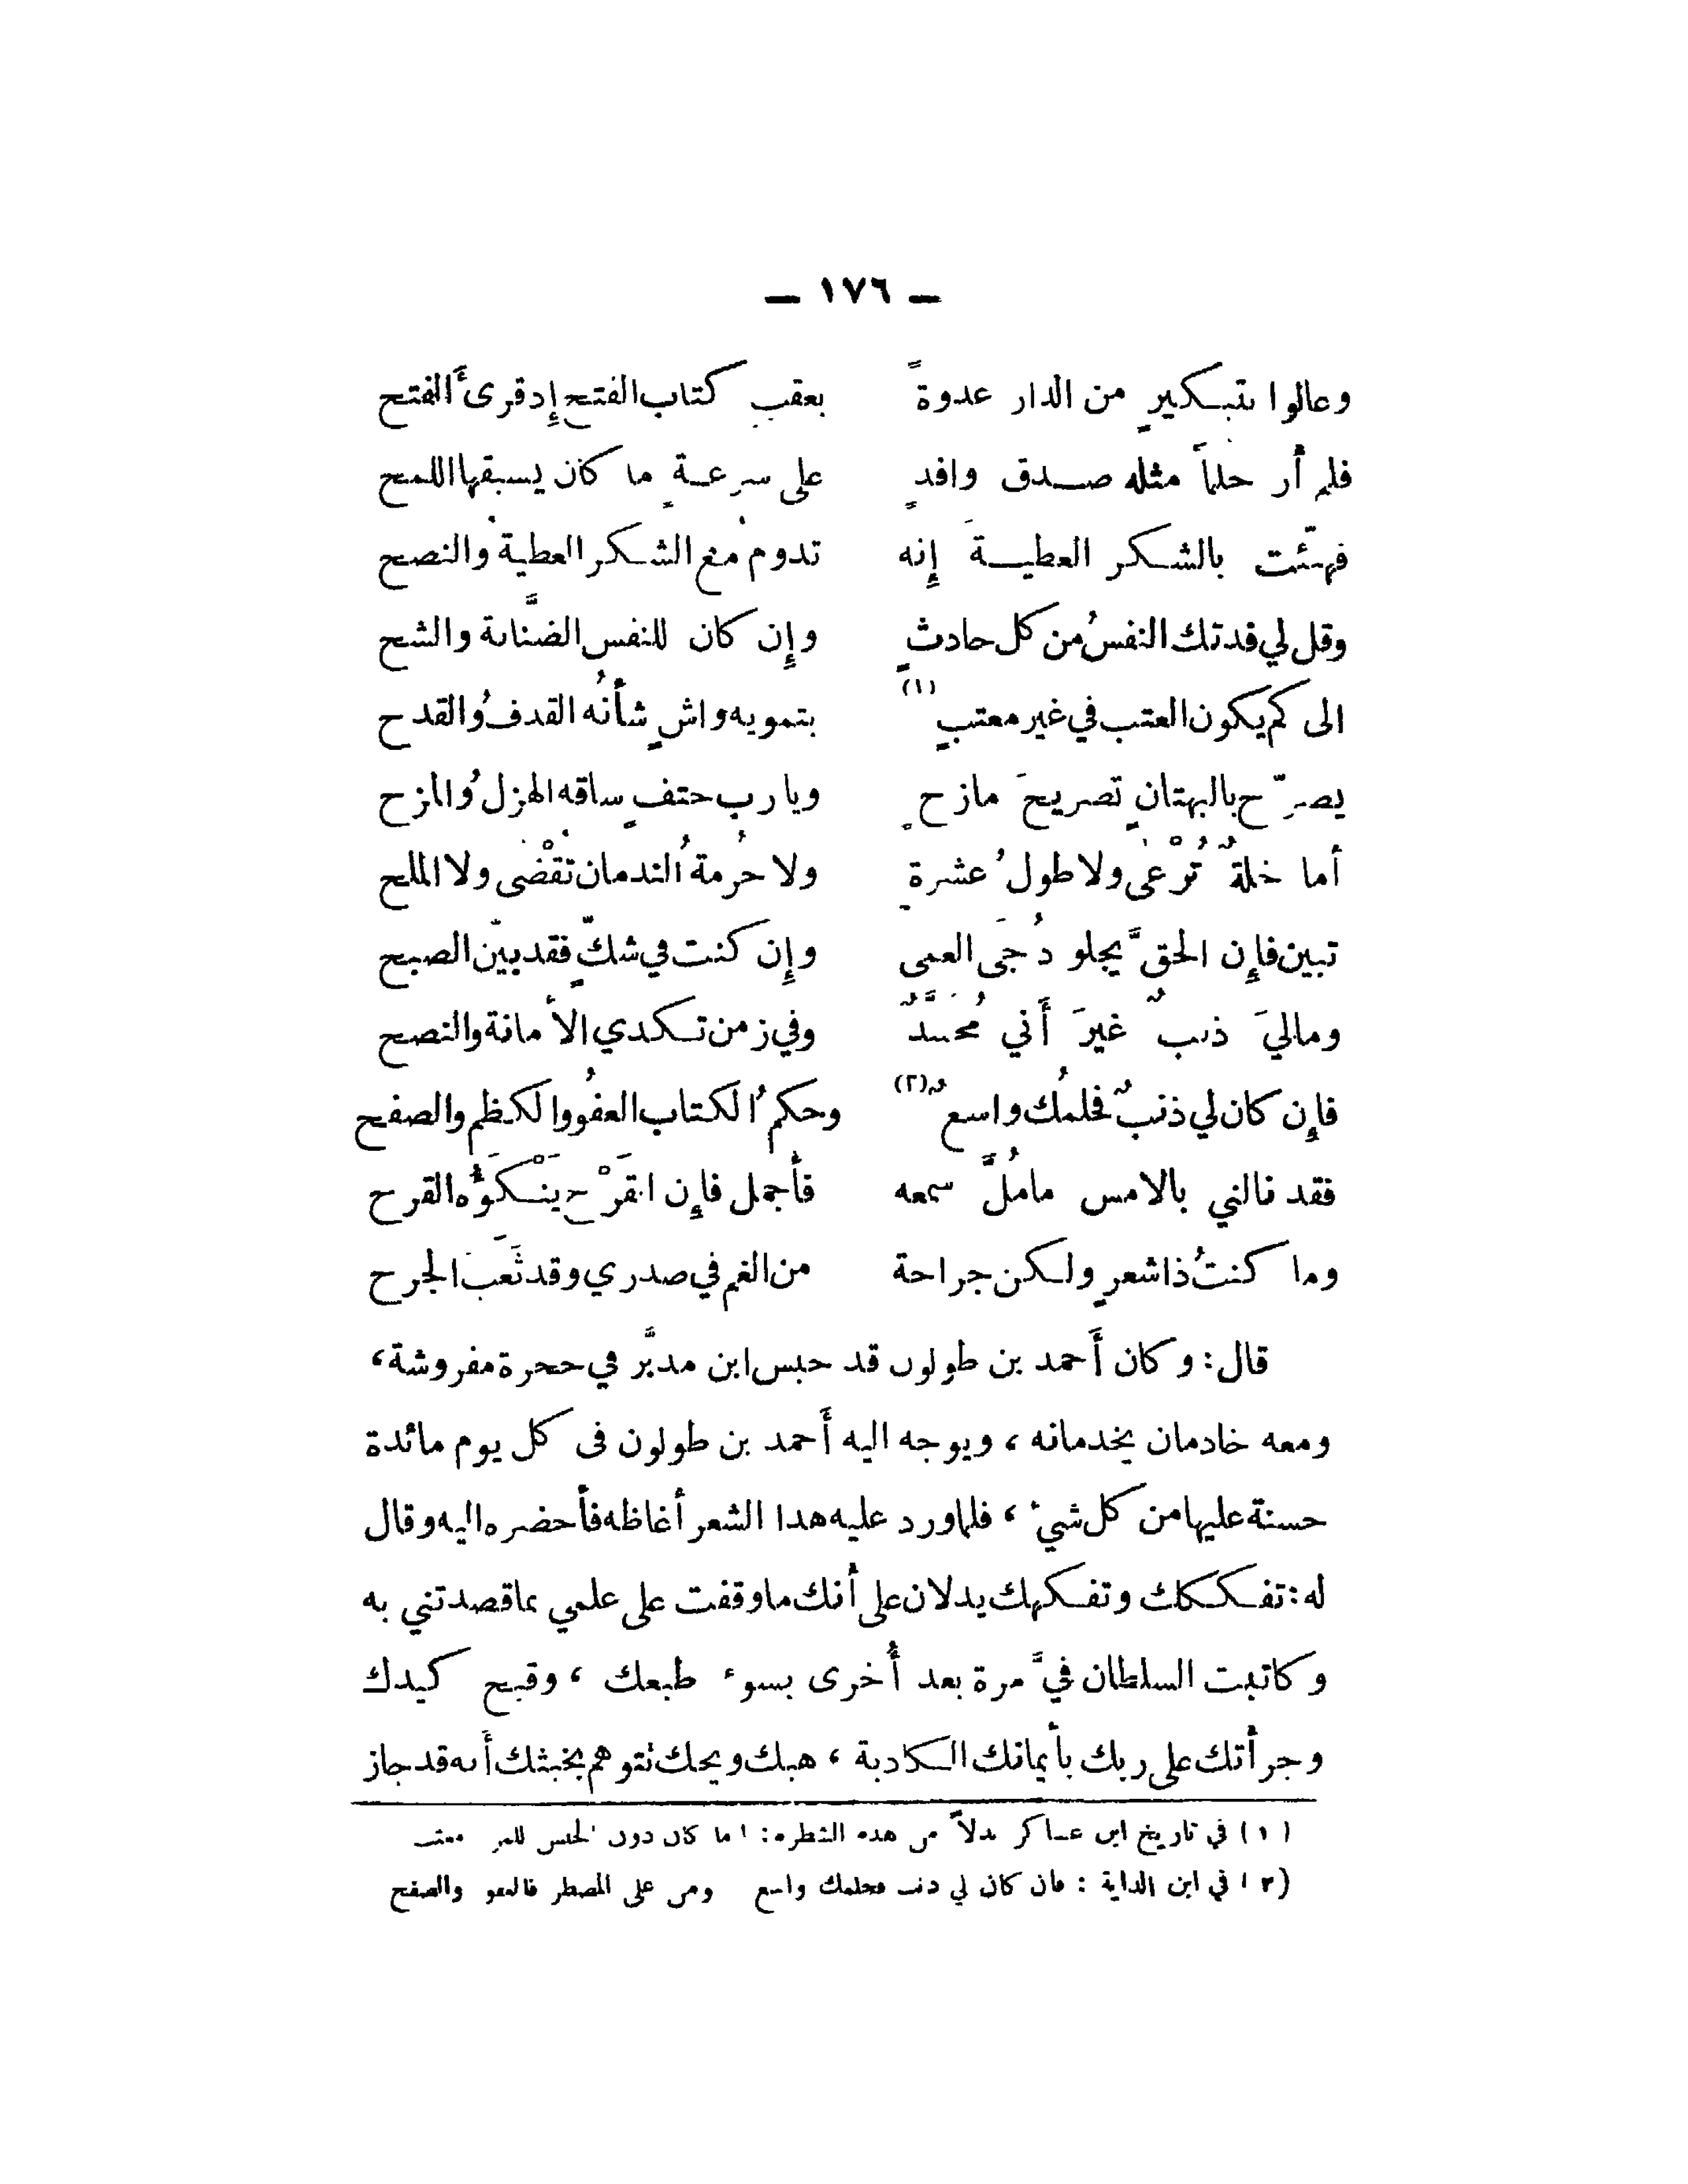 — ١٧٦ —
وعالوا بتبكيرٍ من الدار غدوةً بعقب كتاب الفتح إذ قرئ الفتح
فلم أر حلماً مثله صدق وافدٍ على سرعةٍ ما كان يسبقها اللمح
فهنّئت بالشكر العطيةَ إنه تدوم مع الشكر العطيةُ والنصح
وقل لي فدتك النفسُ من كل حادثٍ وإن كان للنفس الضنَّانة والشح
الى كم يكون العتب في غير معتبٍ (١) بتمويه واشٍ شأنُه القذفُ والقدح
يصرّح بالبهتانِ تصريحَ مازحٍ ويا رب حتفٍ ساقه الهزلُ والمزح
أما خلةٌ تُرْعى ولا طولُ عشرةٍ ولا حُرمةُ الندمان تقْضى ولا الملح
تبين فإن الحقَّ يجلو دُجَى العمى وإن كنت في شكٍّ فقد بيّن الصبح
وماليَ ذنبٌ غيرَ أَني مُحسَّدٌ وفي زمن تكدي الأمانة والنصح
فإن كان لي ذنبٌ فحلمُك واسعٌ (٢) وحكمُ الكتاب العفُو والكظم والصفح
فقد نالني بالامس مامُلَّ سمعه فأجمل فإن القَرْح يَنْكَؤُه القرح
وما كنتُ ذا شعرٍ ولكن جراحة من الغم في صدري وقد ثَعَبَ الجرح
قال: وكان أَحمد بن طولون قد حبس ابن مدبَّر في حجرة مفروشة،
ومعه خادمان يخدمانه، ويوجه اليه أَحمد بن طولون فى كل يوم مائدة
حسنة عليها من كل شيء، فلما ورد عليه هذا الشعر أغاظه فأحضره اليه وقال
له: تفككك وتفكهك يدلان على أنك ما وقفت على علمي بما قصدتني به
وكاتبت السلطان فيَّ مرة بعد أُخرى بسوء طبعك، وقبح كيدك
وجرأتك على ربك بأيمانك الكاذبة، هبك ويحك تتوهم بخبثك أنه قد جاز
(١) في تاريخ ابن عساكر بدلاً من هذه الشطرة: اما كان دون الحبس للمر معتب
(٢) في ابن الداية: فان كان لي ذنب فحلمك واسع ومن على المضطر فالعفو والصفح